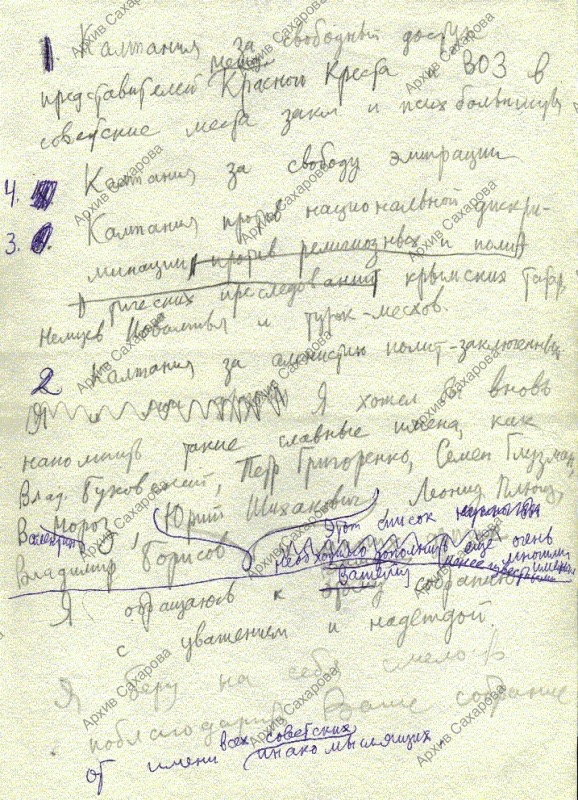 1. Кампания за свободный доступ
представителей Межд. Красного Креста и ВОЗ в
советские места закл и псих больницы
4. Кампания за свободу эмиграции
3. Кампания против национальной дискри-
минации против религиозных и поли
тических преследований крымских татар,
немцев Поволжья и турок-месхов.
2 Кампания за амнистию полит-заключенных
Я хотел бы вновь
напомнить такие славные имена, как
Влад. Буковский, Петр Григоренко, Семен Глузман,
Валентин Мороз, Юрий Шиханович, Леонид Плющ,
Владимир Борисов
Этот список
необходимо дополнить еще очень многими
менее известными именами
Я обращаюсь к Вашему собранию
с уважением и надеждой.
Я беру на себя смелость
поблагодарить Ваше собрание
от имени всех советских
инакомыслящих
Архив Сахарова